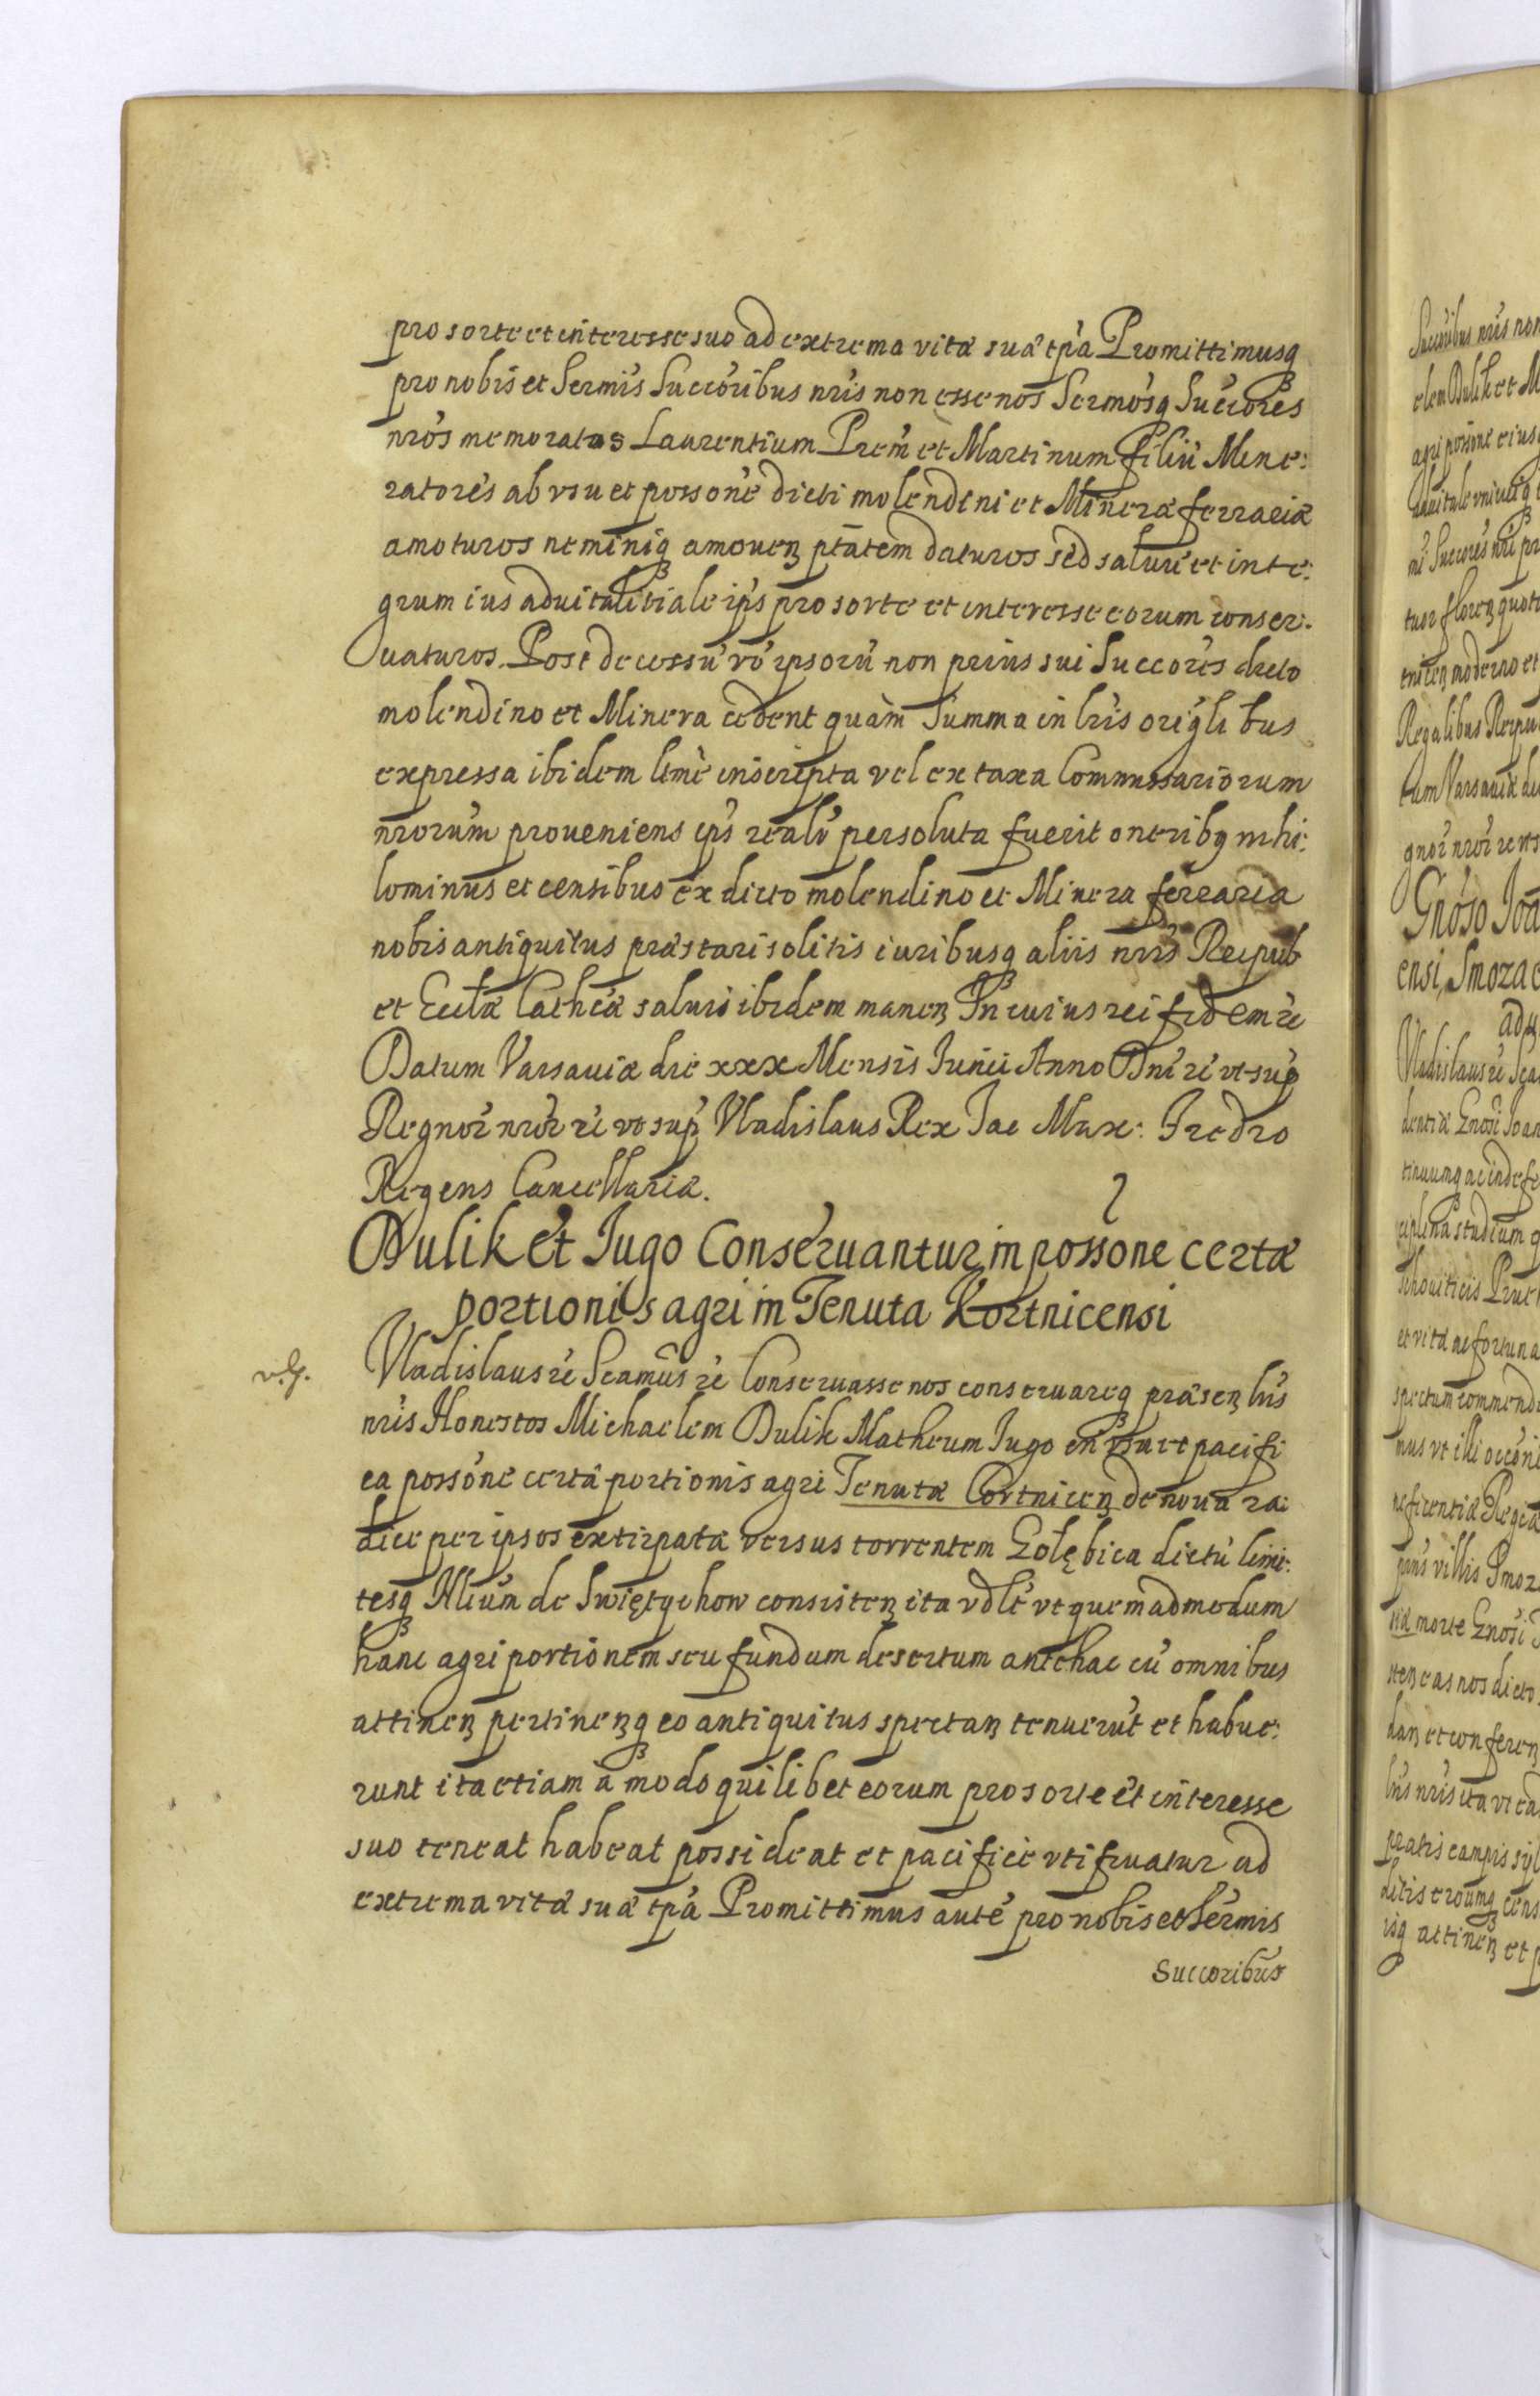 pro sorte et interesse suo ad extrema vitæ suæ tpa Promittimusq
pro nobis et Sermis Succoribus nris non esse nos Sermosq Succores
nros memoratos Laurentium Prem et Martinum filiu Mine:
ratores ab vsu et possone dicti molendini et Mineræ ferrariæ
amoturos neminiq amouen ptatem daturos sed saluu et inte:
grum ius aduitalitiale ips pro sorte et interesse eorum conser:
uaturos. Post decessu vo ipsoru non prius sui Succores dicto
molendino et Minera cedent quàm summa in lris origlibus
expressa ibidem lime inscripta vel ex taxa Commissariorum
nrorum proueniens ips realr persoluta fuerit oneribq nihi:
lominus et censibus ex dicto molendino et Minera ferraria
nobis antiquitus præstari solitis iuribusq aliis nris Reipub
et Ecclæ Catheæ saluis ibidem manen In cuius rei fidem &
Datum Varsauiæ die xxx Mensis Iunii Anno Dni & vt sup
Regnor nror & vt sup Vladislaus Rex Iac Max: Fredro
Regens Cancellariæ.
Dulik et Iugo Conseruantur in possone certæ
portionis agri in Tenuta Kortnicensi
Vladislaus & Seamus & Conseruasse nos conseruareq præsen lris
nris Honestos Michaelem Dulik Matheum Iugo in vsu et pacifi
ca possone certæ portionis agri Tenutæ Cortnicen de noua ra:
dice per ipsos extirpatæ versus torrentem Gołębica dictu limi:
tesq Aliun de Swiętychow consisten ita vdlt vt quemadmodum
hanc agri portionem seu fundum desertum antehac cu omnibus
attinen pertinenq eo antiquitus spectan tenuerut et habue:
runt ita etiam à modo quilibet eorum pro sorte et interesse
suo teneat habeat possideat et pacifice vtifruatur ad
extrema vitæ suæ tpa Promittimus aute pro nobis et Sermis
Succoribus